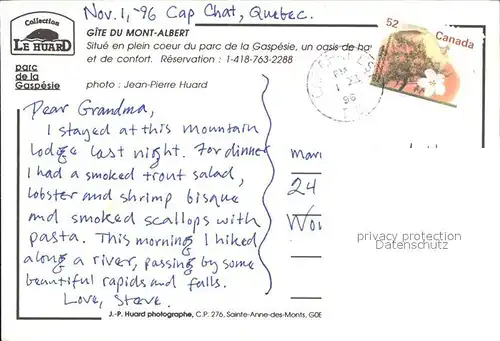 Nov. 1, -96 Cap Chat, Quebec.
Collection
LE HUARD
GÎTE DU MONT-ALBERT
Situé en plein coeur du parc de la Gaspésie, un oasis de
et de confort. Réservation : 1-418-763-2288
parc
de la
Gaspésie
photo : Jean-Pierre Huard
52
Canada
PM
1 XI
96
Dear Grandma,
I stayed at this mountain
lodge last night. For dinner
I had a smoked trout salad,
lobster and shrimp bisque
and smoked scallops with
pasta. This morning I hiked
along a river, passing by some
beautiful rapids and falls.
Love, Steve.
24
privacy protection
Datenschutz
J.-P. Huard photographe, C.P. 276, Sainte-Anne-des-Monts, G0E